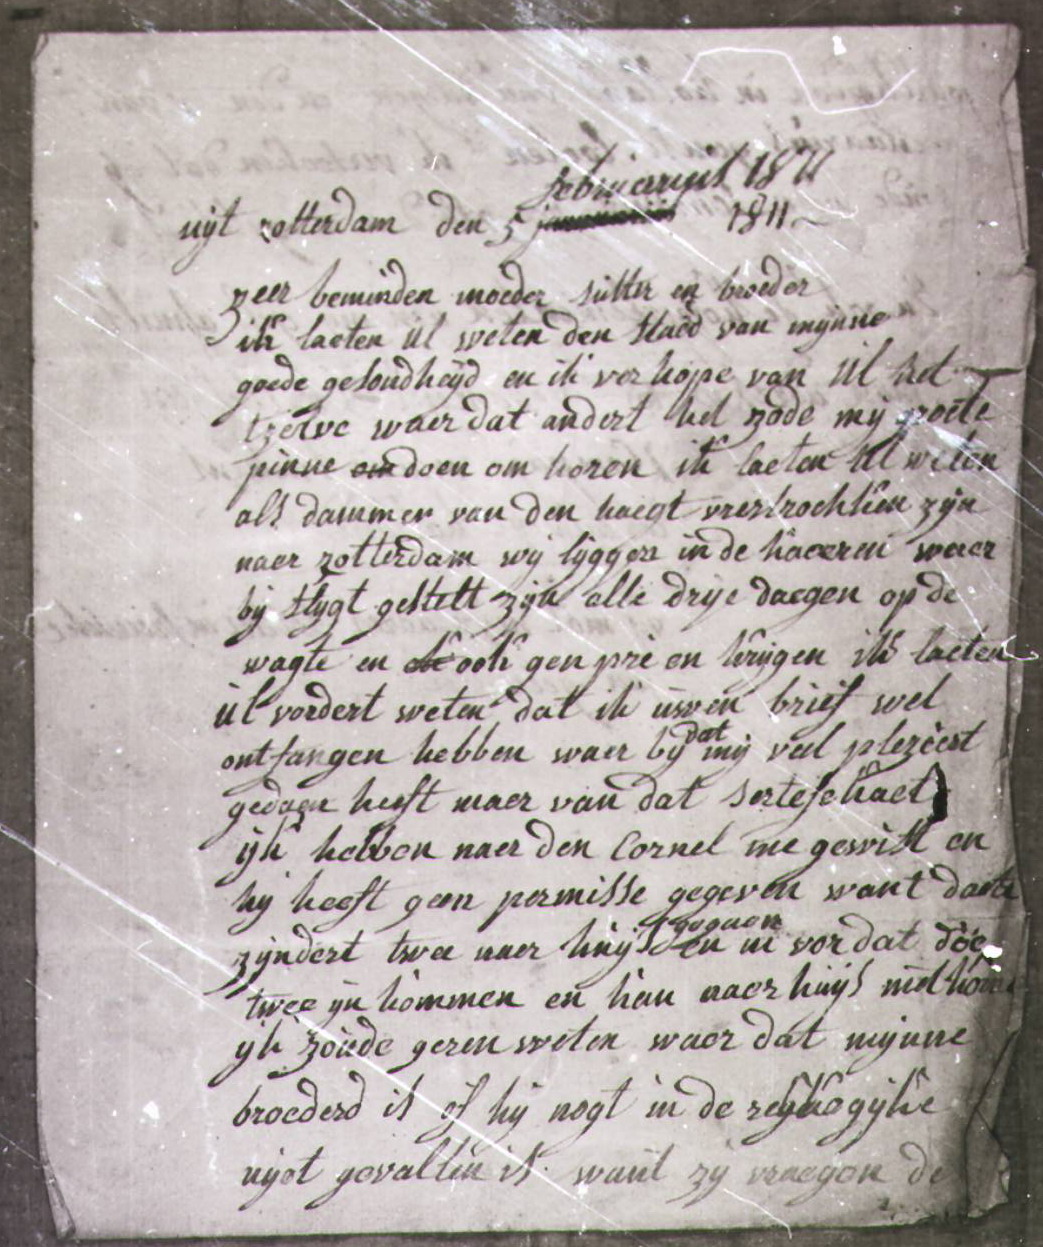 febriuarius 1811
uijt rotterdam den 5 1811
zeer beminden moeder suster en broeder
ik laeten Ul weten den staed van mijnne
goede gesondheijd en ik verhope van Ul het
tzelve waer dat andert het zode mij groote
pinne doen om horen ik laeten Ul weten
als dammen van den haegt vrestrochken zijn
naer rotterdam wij ligggen in de haeren waer
bij slegt gestelt zijn alle drije daegen op de
wagte en ook gen pree en krijgen ik laeten
Ul vordert weten dat ik uwen brief wel
ontfangen hebben waer bij dat mij veel pleziert
gedaen heeft maer van dat sertefekaet
ijk hebben naer den Cornel me gewist en
hij heeft geen permisse gegeven want daer
zijndert twee naer huijs gegaen en ni vor dat dee
twee ijn kommen en kan naer huijs niet komen
ijk zoude geren weten waer dat mijnne
broederd is of hij nogt in de
nijet gevallen is want zij vraegen de